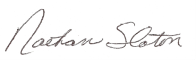 Nathan Slaton